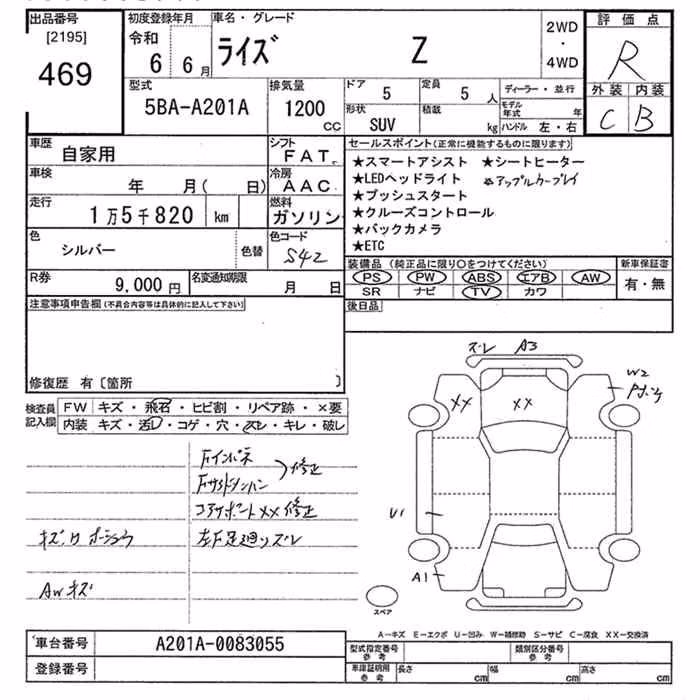 出品番号
[2195]
469
初度登録年月
令和
6 6月
車名・グレード
ライズ Z
2WD
・
4WD
評価点
R
外装 内装
C B
型式
5BA-A201A
排気量
1200
CC
ドア
5
定員
5 人
形状
SUV
積載
kg
ディーラー・並行
モデル年式 年
ハンドル 左・右
車歴
自家用
シフト
FAT
車検
年 月( 日)
冷房
AAC
走行
1万5千820 km
燃料
ガソリン
色
シルバー
色替
色コード
S42
R券
9,000円
名変通知期限
月 日
セールスポイント(正常に機能するものに限ります)
★スマートアシスト ★シートヒーター
★LEDヘッドライト ※アップルカープレイ
★プッシュスタート
★クルーズコントロール
★バックカメラ
★ETC
装備品 (純正品に限り○をつけてください)
PS PW ABS エアB AW
SR ナビ TV カワ
新車保証書
有・無
後日品
注意事項申告欄(不具合内容等は具体的に記入して下さい)
修復歴 有〔箇所 〕
検査員
記入欄
FW キズ・飛石・ヒビ割・リペア跡・×要
内装 キズ・汚レ・コゲ・穴・スレ・キレ・破レ
修正
コアサポートXX 修正
AWキズ
ズレ A3
W2
XX XX
U1
A1
スペア
A-キズ E-エクボ U-凹み W-補修跡 S-サビ C-腐食 XX-交換済
車台番号
A201A-0083055
登録番号
型式指定番号
参考
類別区分番号
参考
車庫証明用
参考
長さ cm 幅 cm 高さ cm